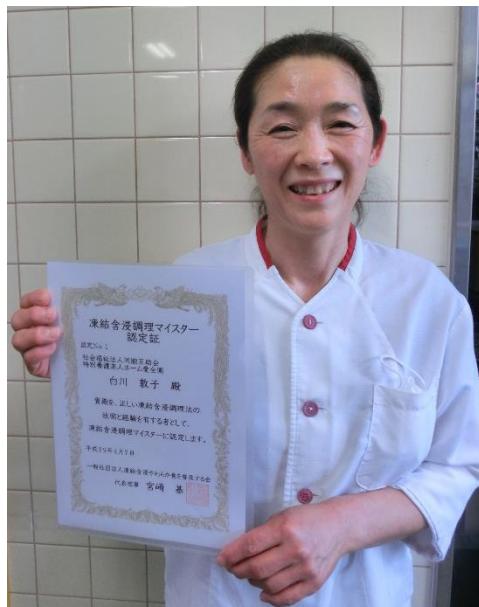 凍結含浸調理マイスター
認定証
認定No.1
社会福祉法人河擬互助会
特別養護老人ホーム愛全園
白川 敦子 殿
貴殿を、正しい凍結含浸調理法の
技術と経験を有する者として、
凍結含浸調理マイスターに認定します。
一般社団法人凍結含浸やわらか食を普及する会
代表理事 宮崎 基